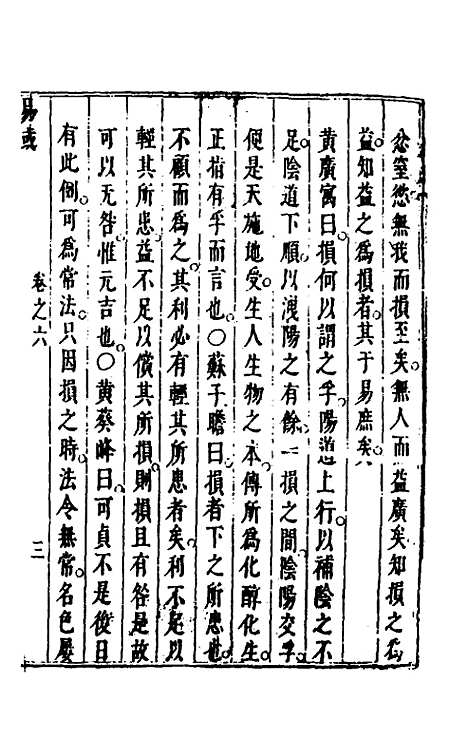 忿窒慾無我而損至矣無人而益廣矣知損之爲
益知益之爲損者其于易庶矣
黄廣寓曰損何以謂之孚陽道上行以補陰之不
足陰道下順以洩陽之有餘一損之間陰陽交孚
便是天施地受生人生物之本傳所爲化醇化生
正指有孚而言也○蘇子瞻曰損者下之所患也
不顧而爲之其利必有輕其所患者矣利不足以
輕其所患益不足以償其所損則損且有咎是故
可以无咎惟元吉也○黄葵峰曰可貞不是後日
有此例可爲常法只因損之時法令無常名色屡
易或
卷之六
三